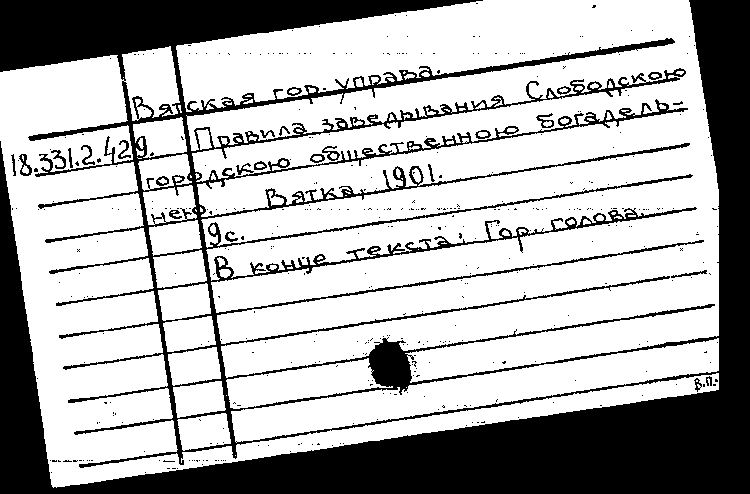 Вятская гор. управа.
18.331.2.429. Правила заведывания Слободскою
городскою общественною богадель-
нею. Вятка, 1901.
9с.
В конце текста: Гор. голова.
В.П.